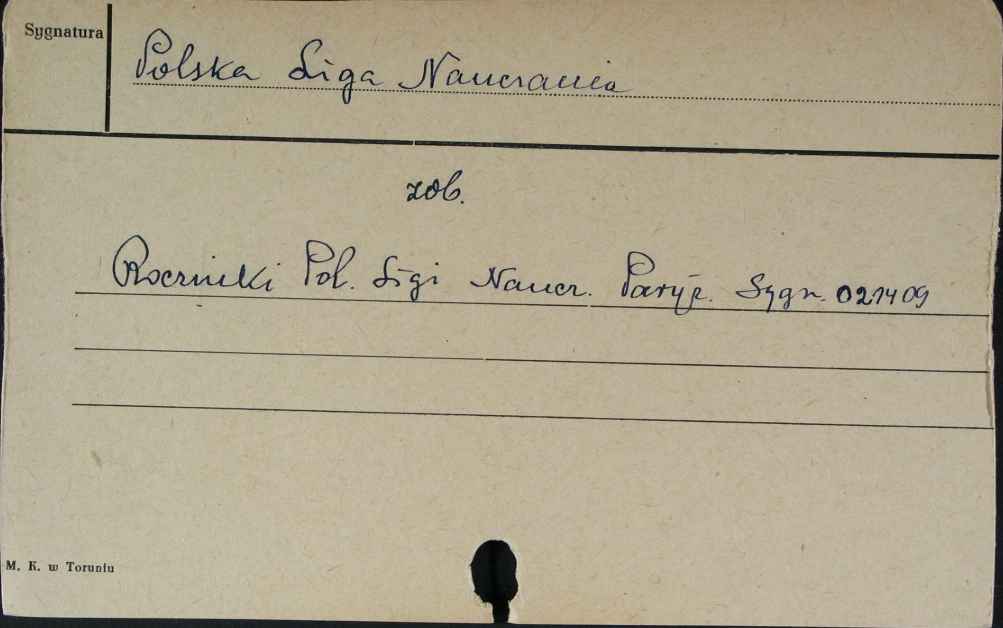 Sygnatura
Polska Liga Nauczania
zob.
Roczniki Pol. Ligi Naucz. Paryż. Sygn. 021409
M. K. w Toruniu